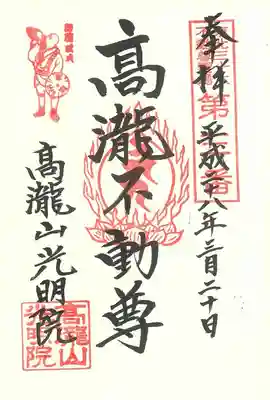 奉拝
平成二十八年三月二十日
高瀧不動尊
高瀧山光明院
高瀧山
光明院